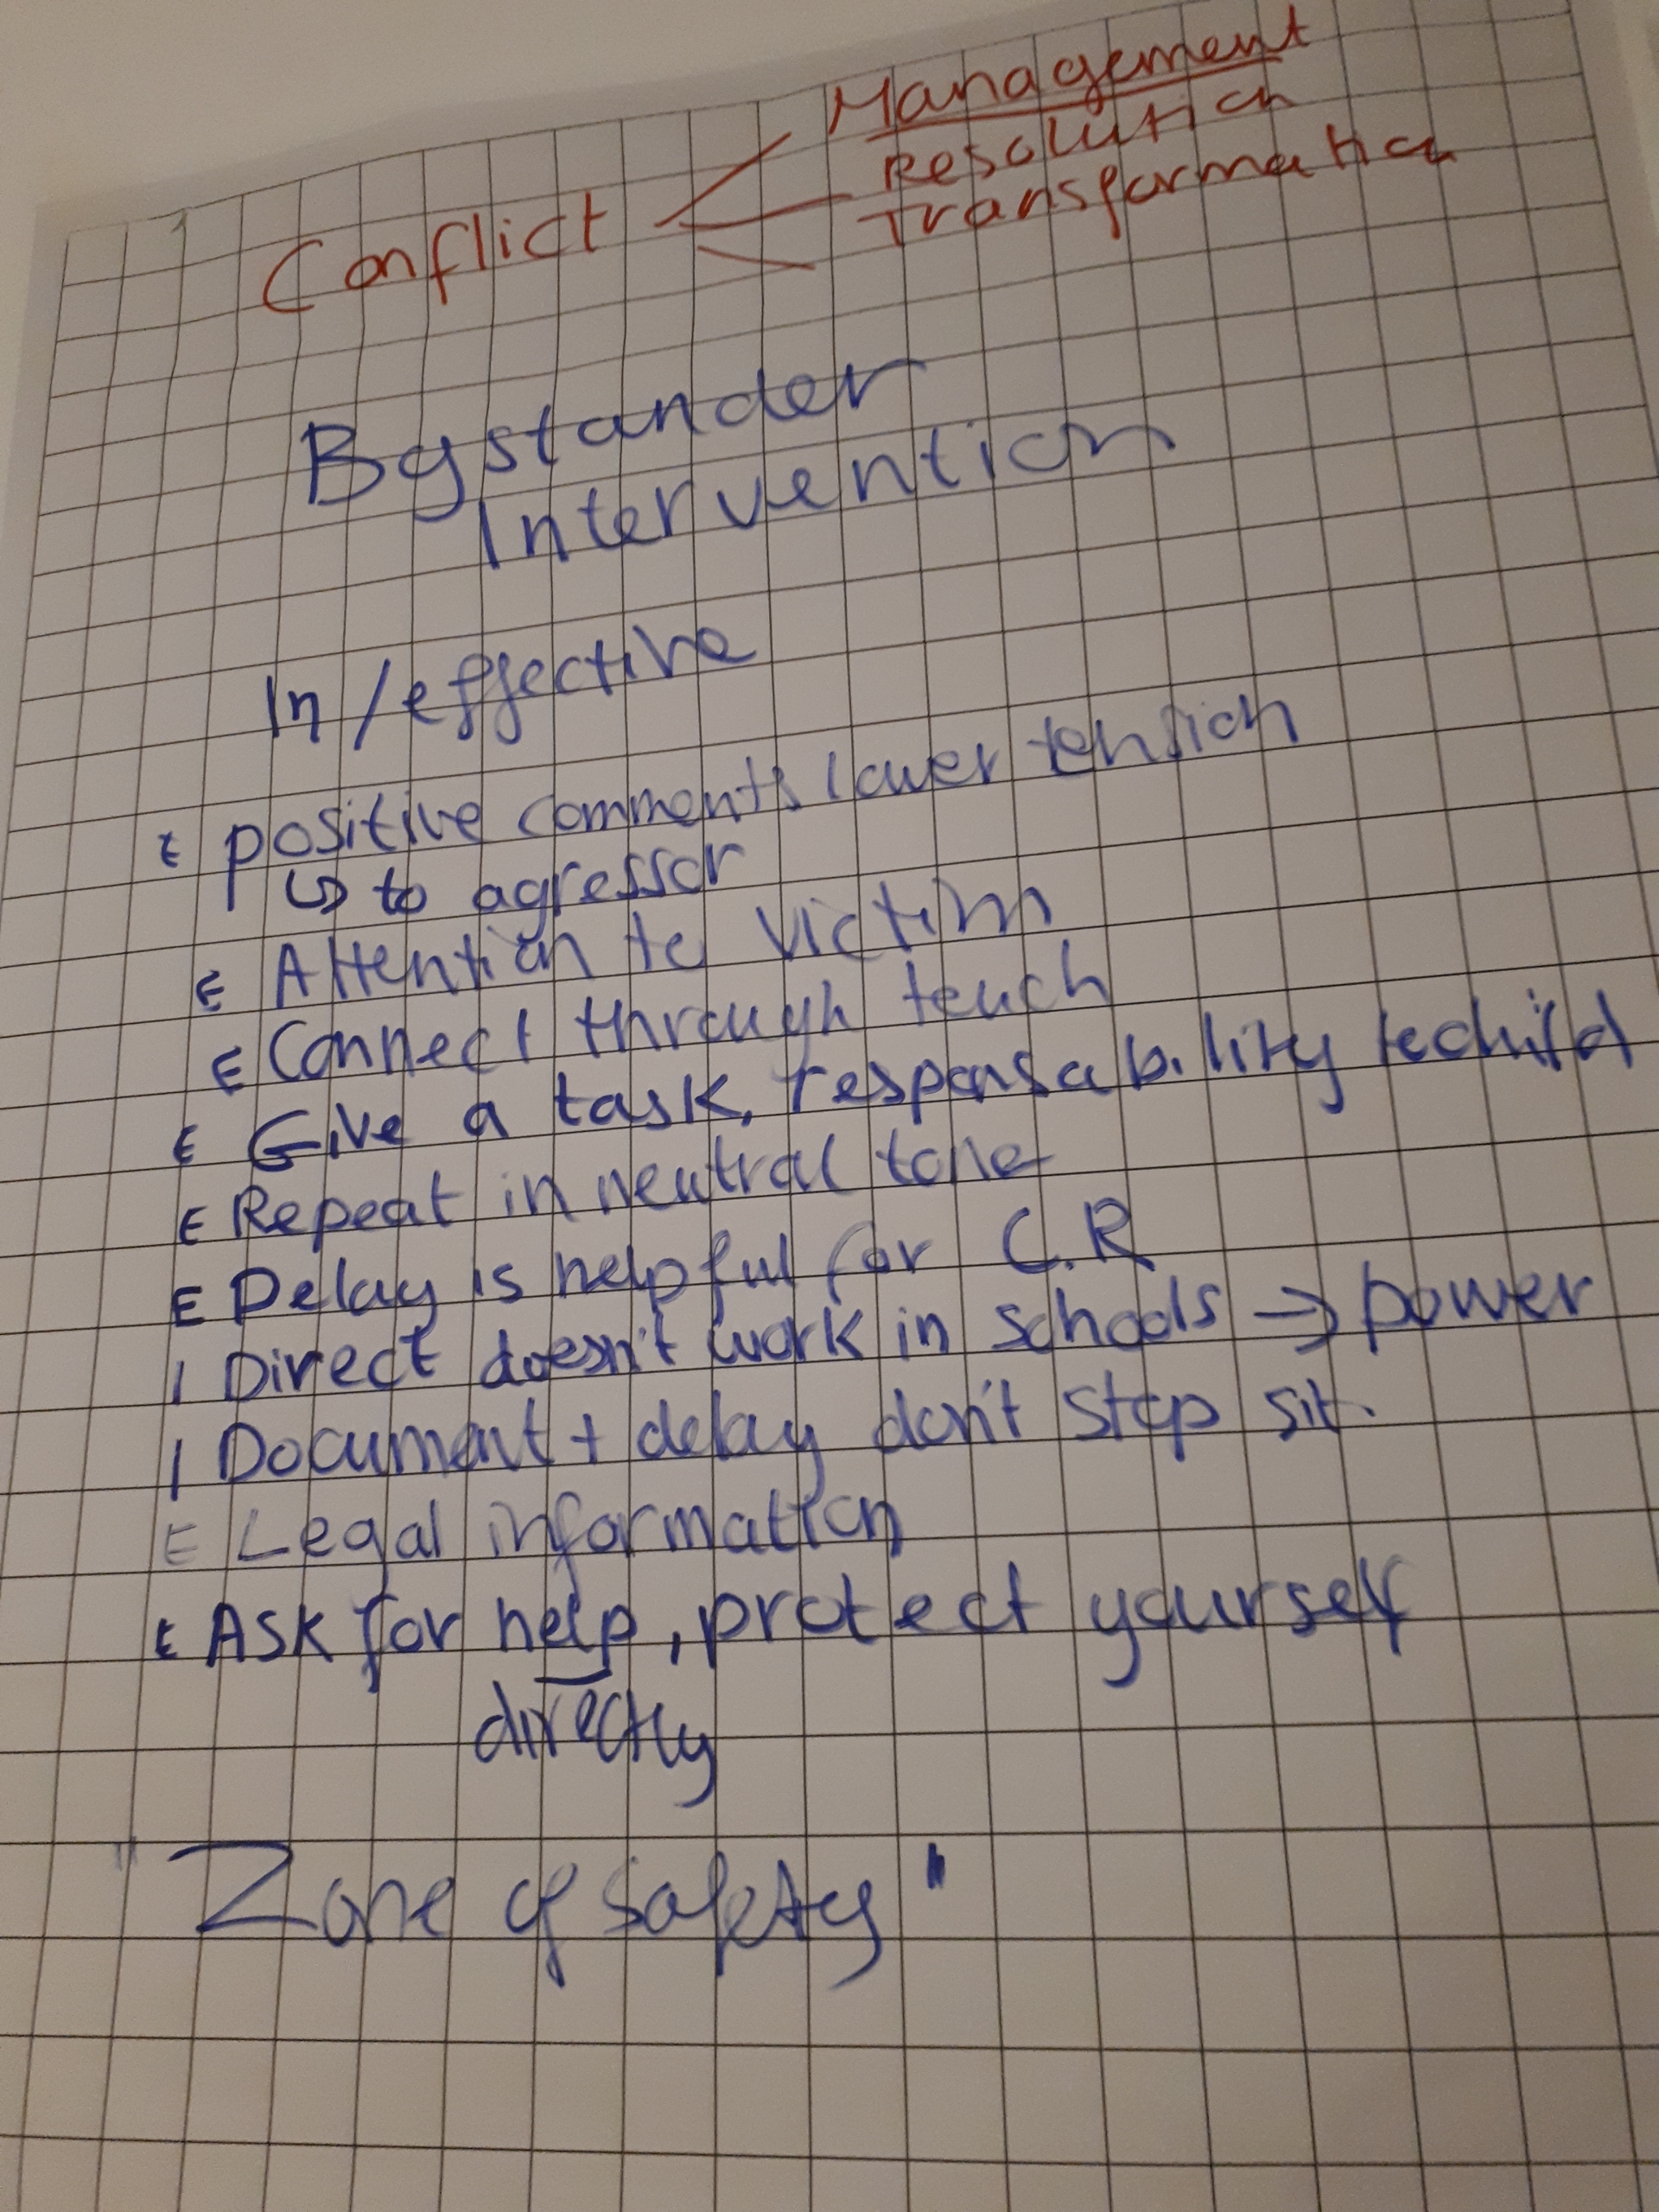 Management
Conflict Resolution
Transformation
Bystander
Intervention
In/effective
E positive comments lower tension
↳ to agressor
E Attention to victim
E Connect through touch
E Give a task, responsability to child
E Repeat in neutral tone
E Delay is helpful for C.R
I Direct doesn't work in schools → power
I Document + delay don't stop sit.
E Legal information
E Ask for help, protect yourself
directly
"Zone of safety"